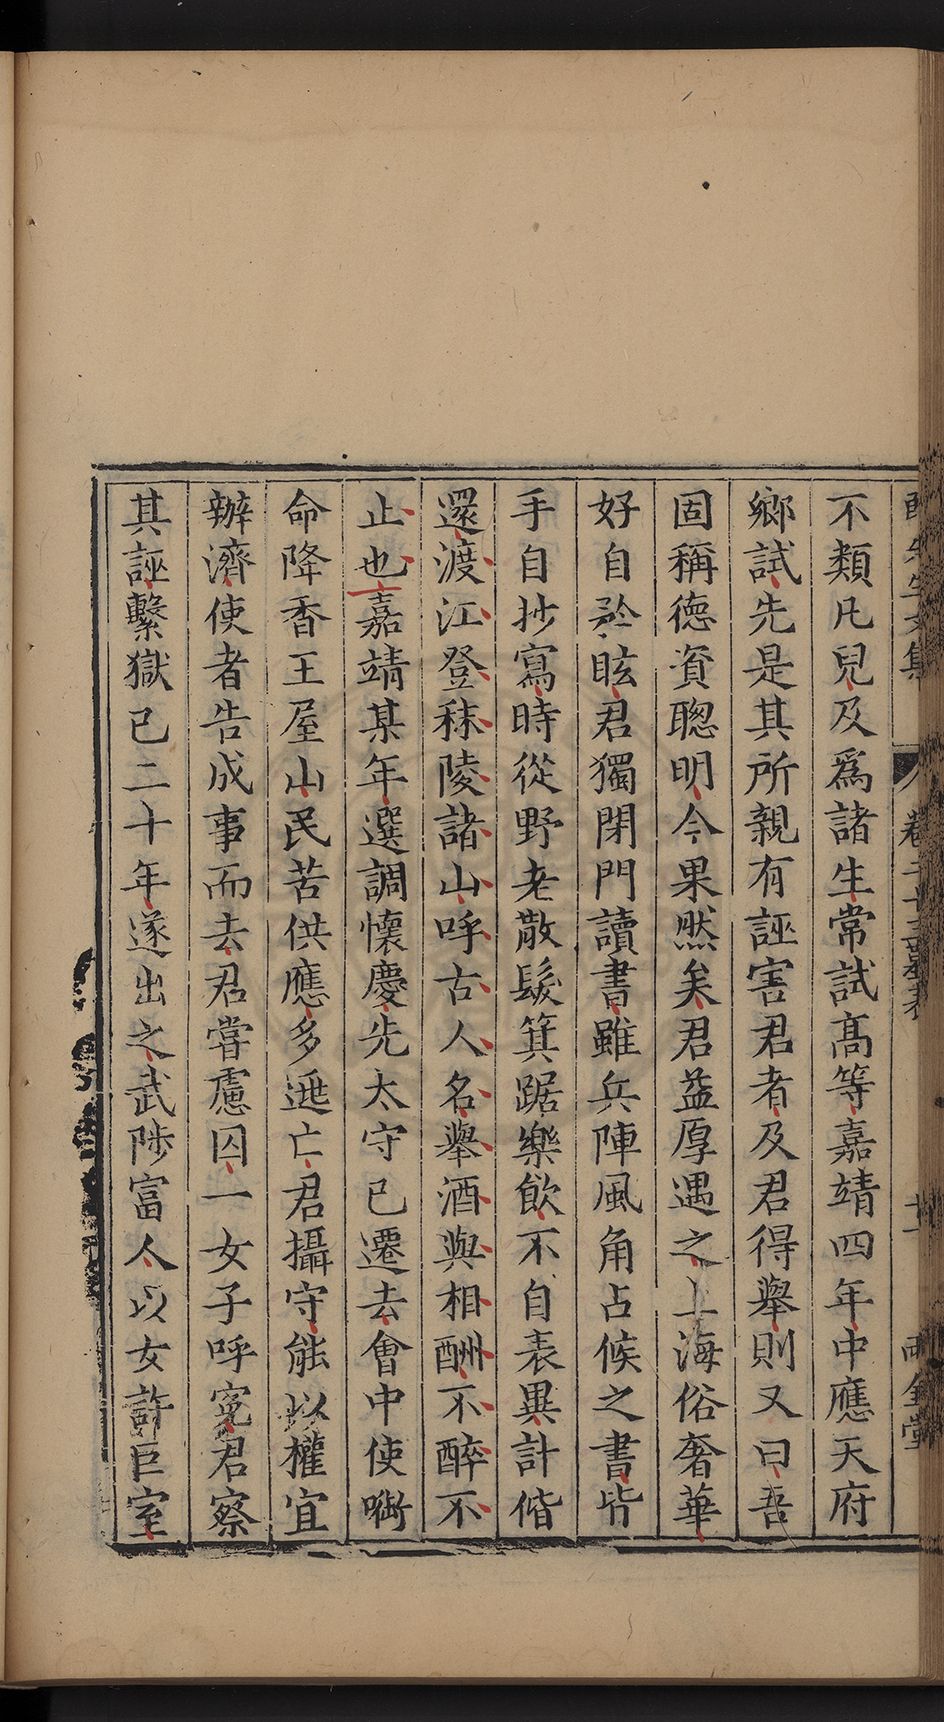 不類凡兒及爲諸生常試高等嘉靖四年中應天府
鄉試先是其所親有誣害君者及君得舉則又曰吾
固稱德資聰明今果然矣君益厚遇之上海俗奢華
好自矜眩君獨閉門讀書雖兵陣風角占候之書皆
手自抄寫時從野老散髮箕踞樂飲不自表異計偕
還渡江登秣陵諸山呼古人名舉酒與相酬不醉不
止也嘉靖某年選調懷慶先太守已遷去會中使啣
命降香王屋山民苦供應多逃亡君攝守能以權宜
辦濟使者告成事而去君嘗慮囚一女子呼冤君察
其誣繫獄已二十年遂出之武陟富人以女許巨室